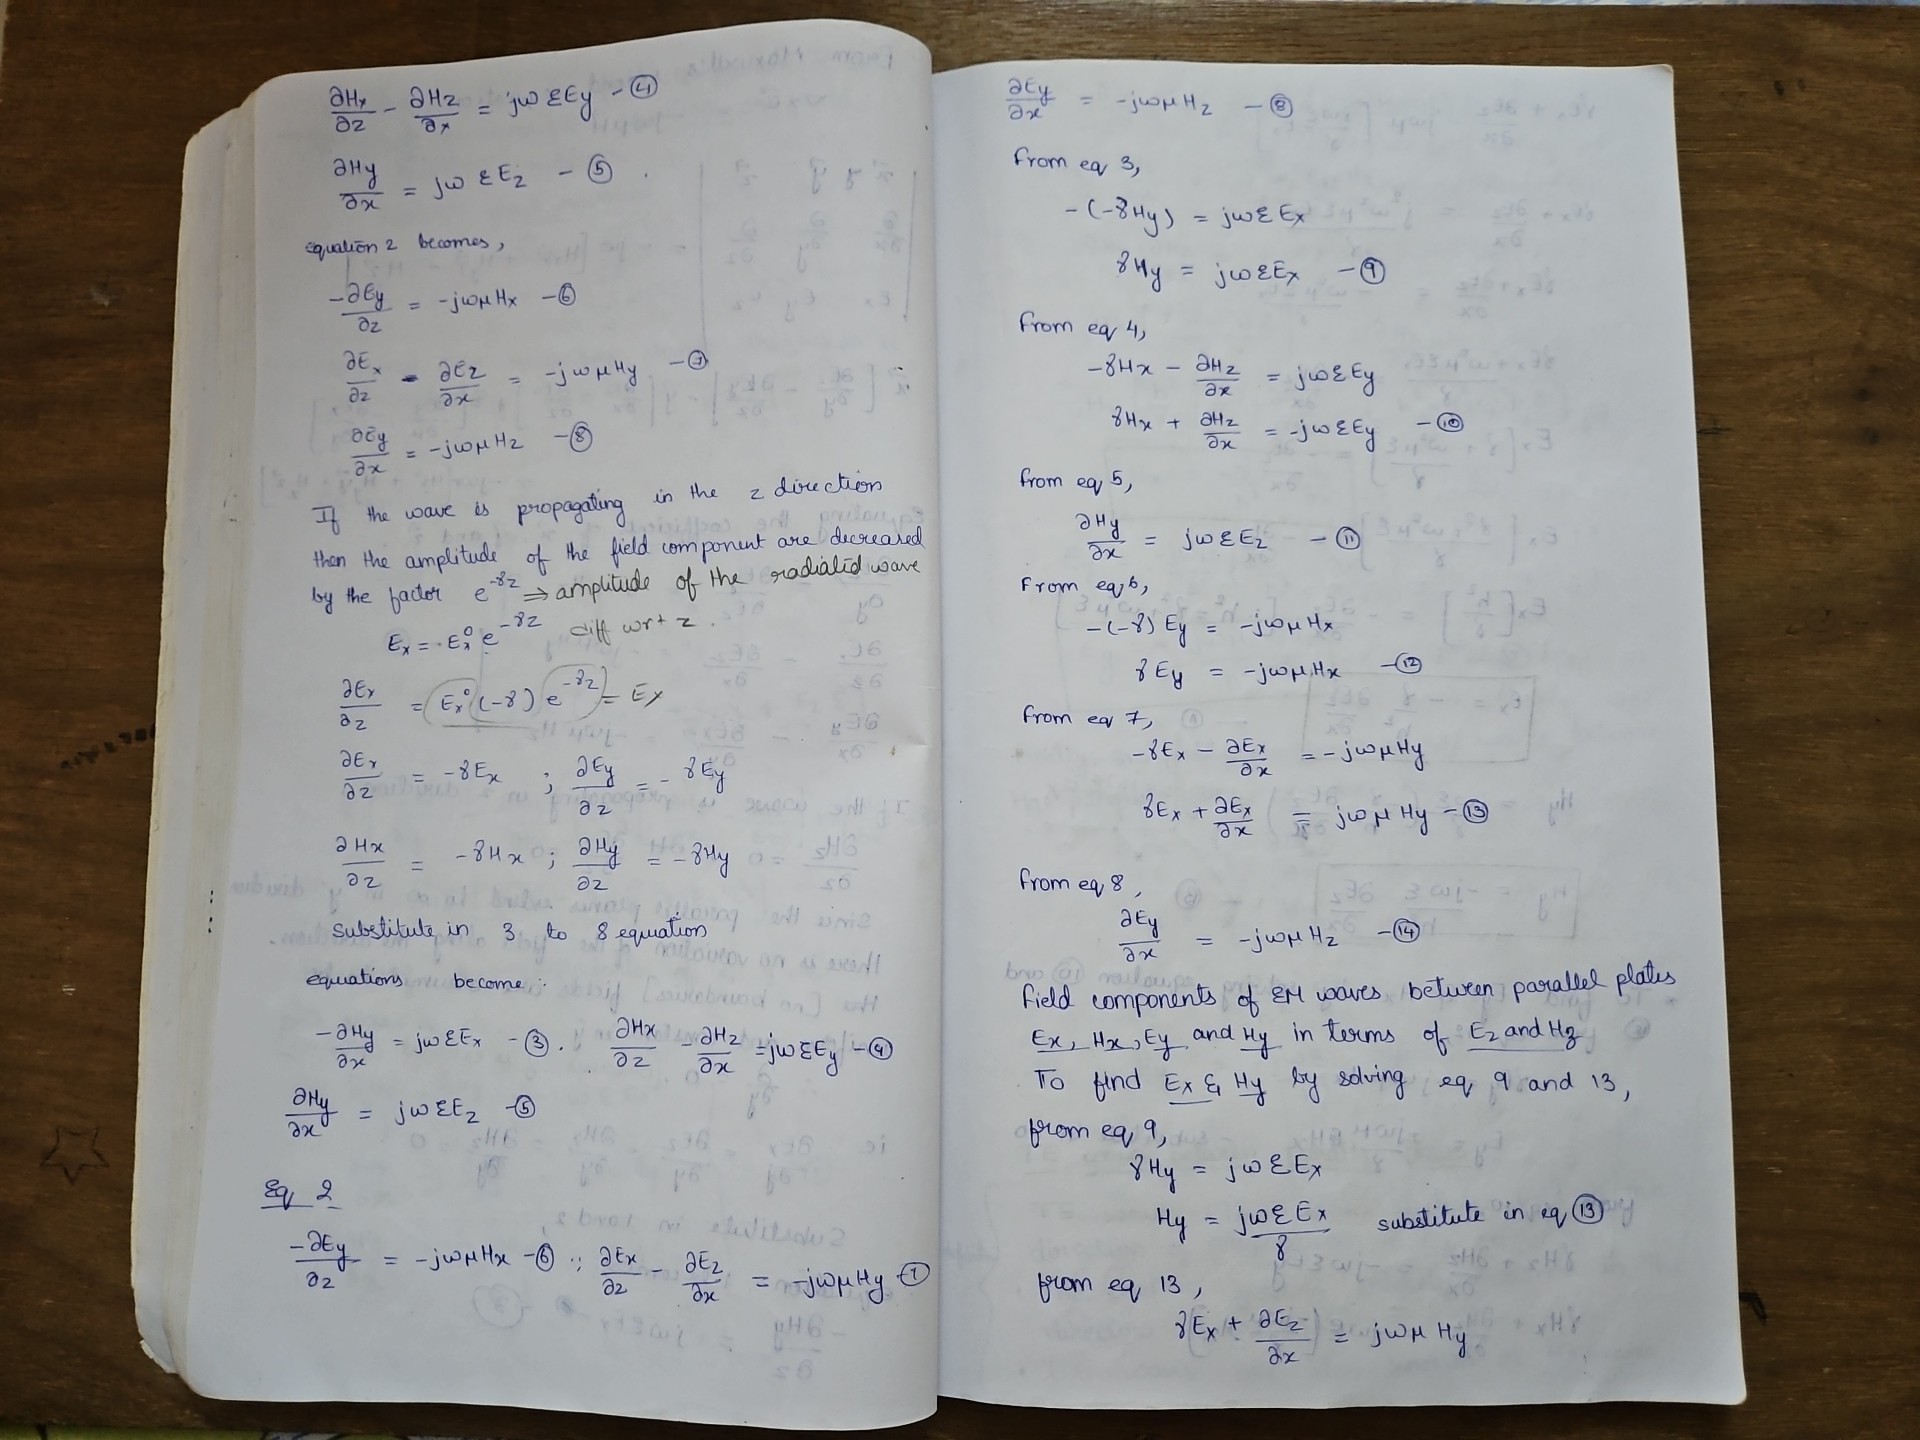 ∂Hx/∂z - ∂Hz/∂x = jωεEy - ④
∂Hy/∂x = jωεEz - ⑤
equation 2 becomes,
-∂Ey/∂z = -jωμHx - ⑥
∂Ex/∂z - ∂Ez/∂x = -jωμHy - ⑦
∂Ey/∂x = -jωμHz - ⑧
If the wave is propagating in the z direction
then the amplitude of the field component are decreased
by the factor e^-γz ⇒ amplitude of the radiated wave
Ex = Ex⁰ e^-γz diff wrt z.
∂Ex/∂z = Ex⁰ (-γ) e^-γz = Ex
∂Ex/∂z = -γEx ; ∂Ey/∂z = -γEy
∂Hx/∂z = -γHx ; ∂Hy/∂z = -γHy
substitute in 3 to 8 equation
equations become:
-∂Hy/∂x = jωεEx - ③. ∂Hx/∂z - ∂Hz/∂x = jωεEy - ④
∂Hy/∂x = jωεEz - ⑤
Eq 2
-∂Ey/∂z = -jωμHx - ⑥ ; ∂Ex/∂z - ∂Ez/∂x = -jωμHy - ⑦
∂Ey/∂x = -jωμHz - ⑧
from eq 3,
-(-γHy) = jωεEx
γHy = jωεEx - ⑨
from eq 4,
-γHx - ∂Hz/∂x = jωεEy
γHx + ∂Hz/∂x = -jωεEy - ⑩
from eq 5,
∂Hy/∂x = jωεEz - ⑪
From eq 6,
-(-γ)Ey = -jωμHx
γEy = -jωμHx - ⑫
from eq 7,
-γEx - ∂Ex/∂x = -jωμHy
γEx + ∂Ex/∂x = jωμHy - ⑬
from eq 8,
∂Ey/∂x = -jωμHz - ⑭
field components of EM waves between parallel plates
Ex, Hx, Ey and Hy in terms of Ez and Hz
To find Ex & Hy by solving eq 9 and 13,
from eq 9,
γHy = jωεEx
Hy = jωεEx/γ substitute in eq ⑬
from eq 13,
γEx + ∂Ez/∂x = jωμHy